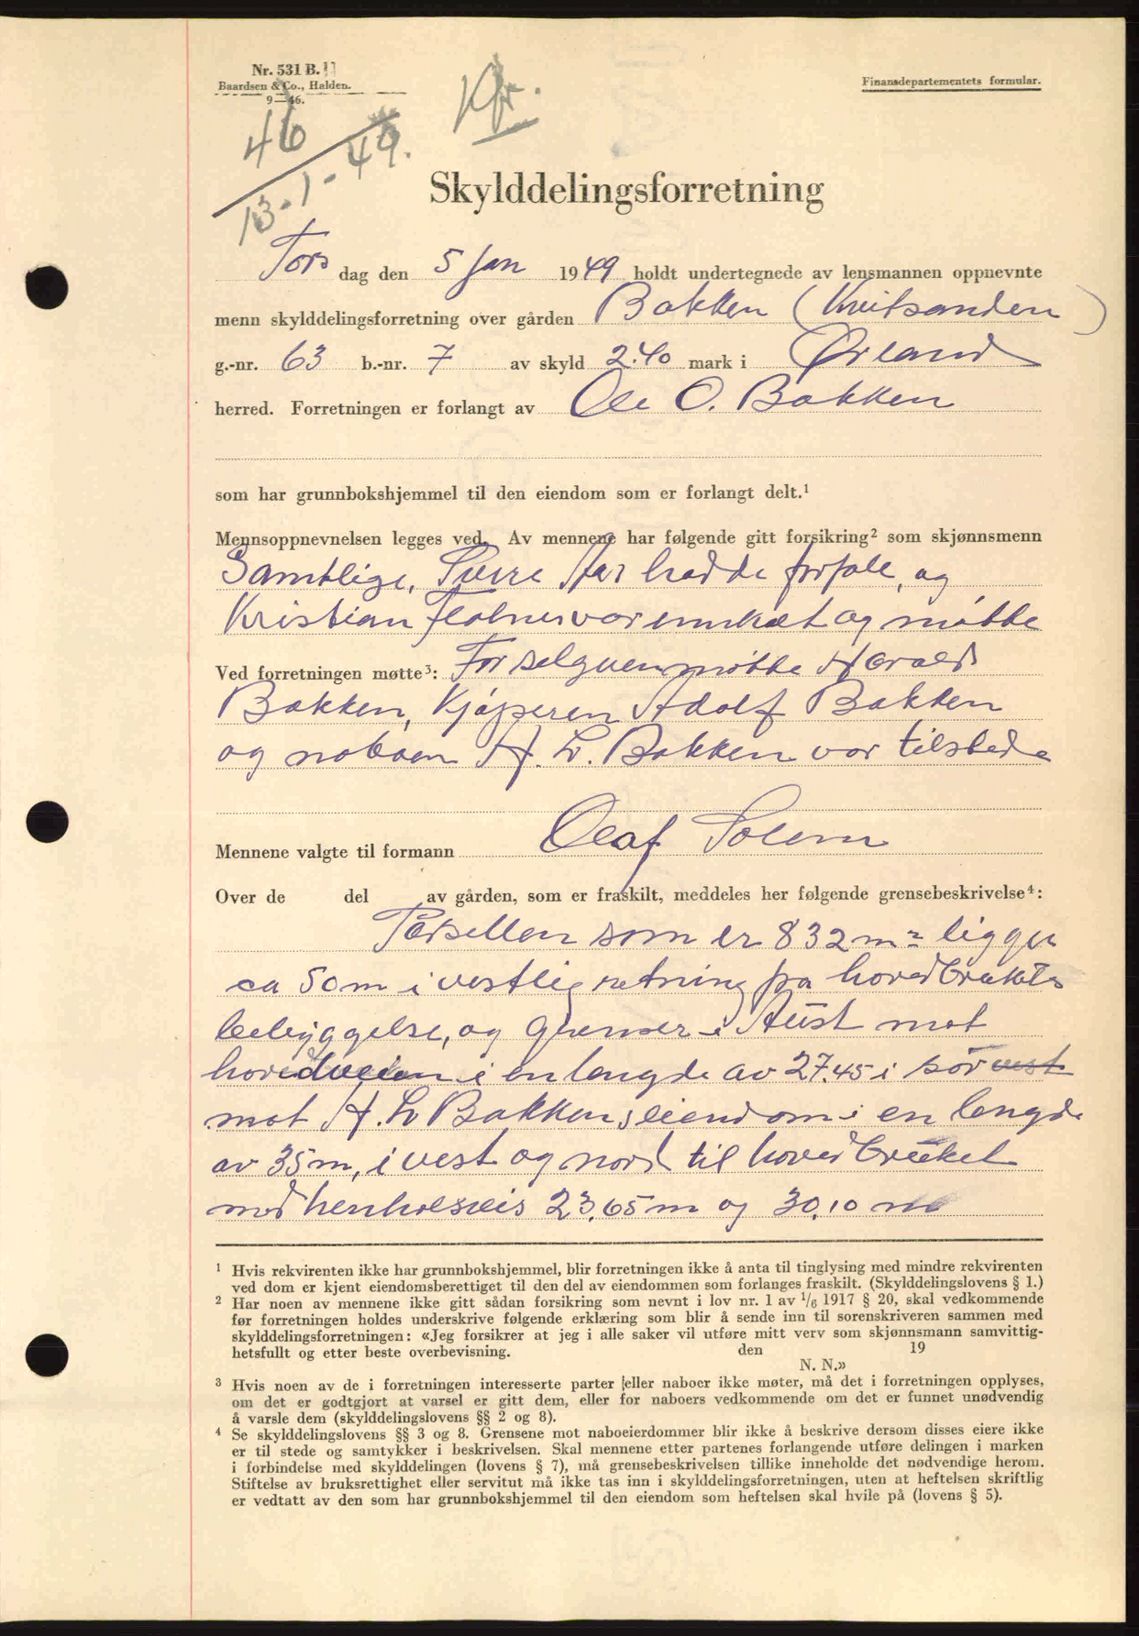 Nr. 531 B.
Baardsen & Co., Halden.
9—46.
Finansdepartementets formular.
46
13-1-49.
Skylddelingsforretning
Tors dag den 5 Jan 1949 holdt undertegnede av lensmannen oppnevnte
menn skylddelingsforretning over gården Bakken (Kvitsanden)
g.-nr. 63 b.-nr. 7 av skyld 2.40 mark i Ørland
herred. Forretningen er forlangt av Ole O. Bakken
som har grunnbokshjemmel til den eiendom som er forlangt delt.¹
Mennsoppnevnelsen legges ved. Av mennene har følgende gitt forsikring² som skjønnsmenn
Samtlige, Sverre Aar hadde forfall, og
Kristian var innkalt og møtte
Ved forretningen møtte³: For selgeren møtte Harald
Bakken, Kjøperen Adolf Bakken
og naboen H. L. Bakken var tilstede
Mennene valgte til formann Olaf Solem
Over de del av gården, som er fraskilt, meddeles her følgende grensebeskrivelse⁴:
Parsellen som er 832 m² ligger
ca 50 m i vestlig retning fra hovedbrukets
bebyggelse, og grenser i Aust mot
hovedveien i en lengde av 27.45 i sør vest
mot H. L. Bakkens eiendom i en lengde
av 35 m, i vest og nord til hovedbruket
med henholsvis 23,65 m og 30,10 m
¹ Hvis rekvirenten ikke har grunnbokshjemmel, blir forretningen ikke å anta til tinglysing med mindre rekvirenten
ved dom er kjent eiendomsberettiget til den del av eiendommen som forlanges fraskilt. (Skylddelingslovens § 1.)
² Har noen av mennene ikke gitt sådan forsikring som nevnt i lov nr. 1 av 1/6 1917 § 20, skal vedkommende
før forretningen holdes underskrive følgende erklæring som blir å sende inn til sorenskriveren sammen med
skylddelingsforretningen: «Jeg forsikrer at jeg i alle saker vil utføre mitt verv som skjønnsmann samvittig-
hetsfullt og etter beste overbevisning. den 19
N. N.»
³ Hvis noen av de i forretningen interesserte parter eller naboer ikke møter, må det i forretningen opplyses,
om det er godtgjort at varsel er gitt dem, eller for naboers vedkommende om det er funnet unødvendig
å varsle dem (skylddelingslovens §§ 2 og 8).
⁴ Se skylddelingslovens §§ 3 og 8. Grensene mot naboeierdommer blir ikke å beskrive dersom disses eiere ikke
er til stede og samtykker i beskrivelsen. Skal mennene etter partenes forlangende utføre delingen i marken
i forbindelse med skylddelingen (lovens § 7), må grensebeskrivelsen tillike inneholde det nødvendige herom.
Stiftelse av bruksrettighet eller servitut må ikke tas inn i skylddelingsforretningen, uten at heftelsen skriftlig
er vedtatt av den som har grunnbokshjemmel til den eiendom som heftelsen skal hvile på (lovens § 5).